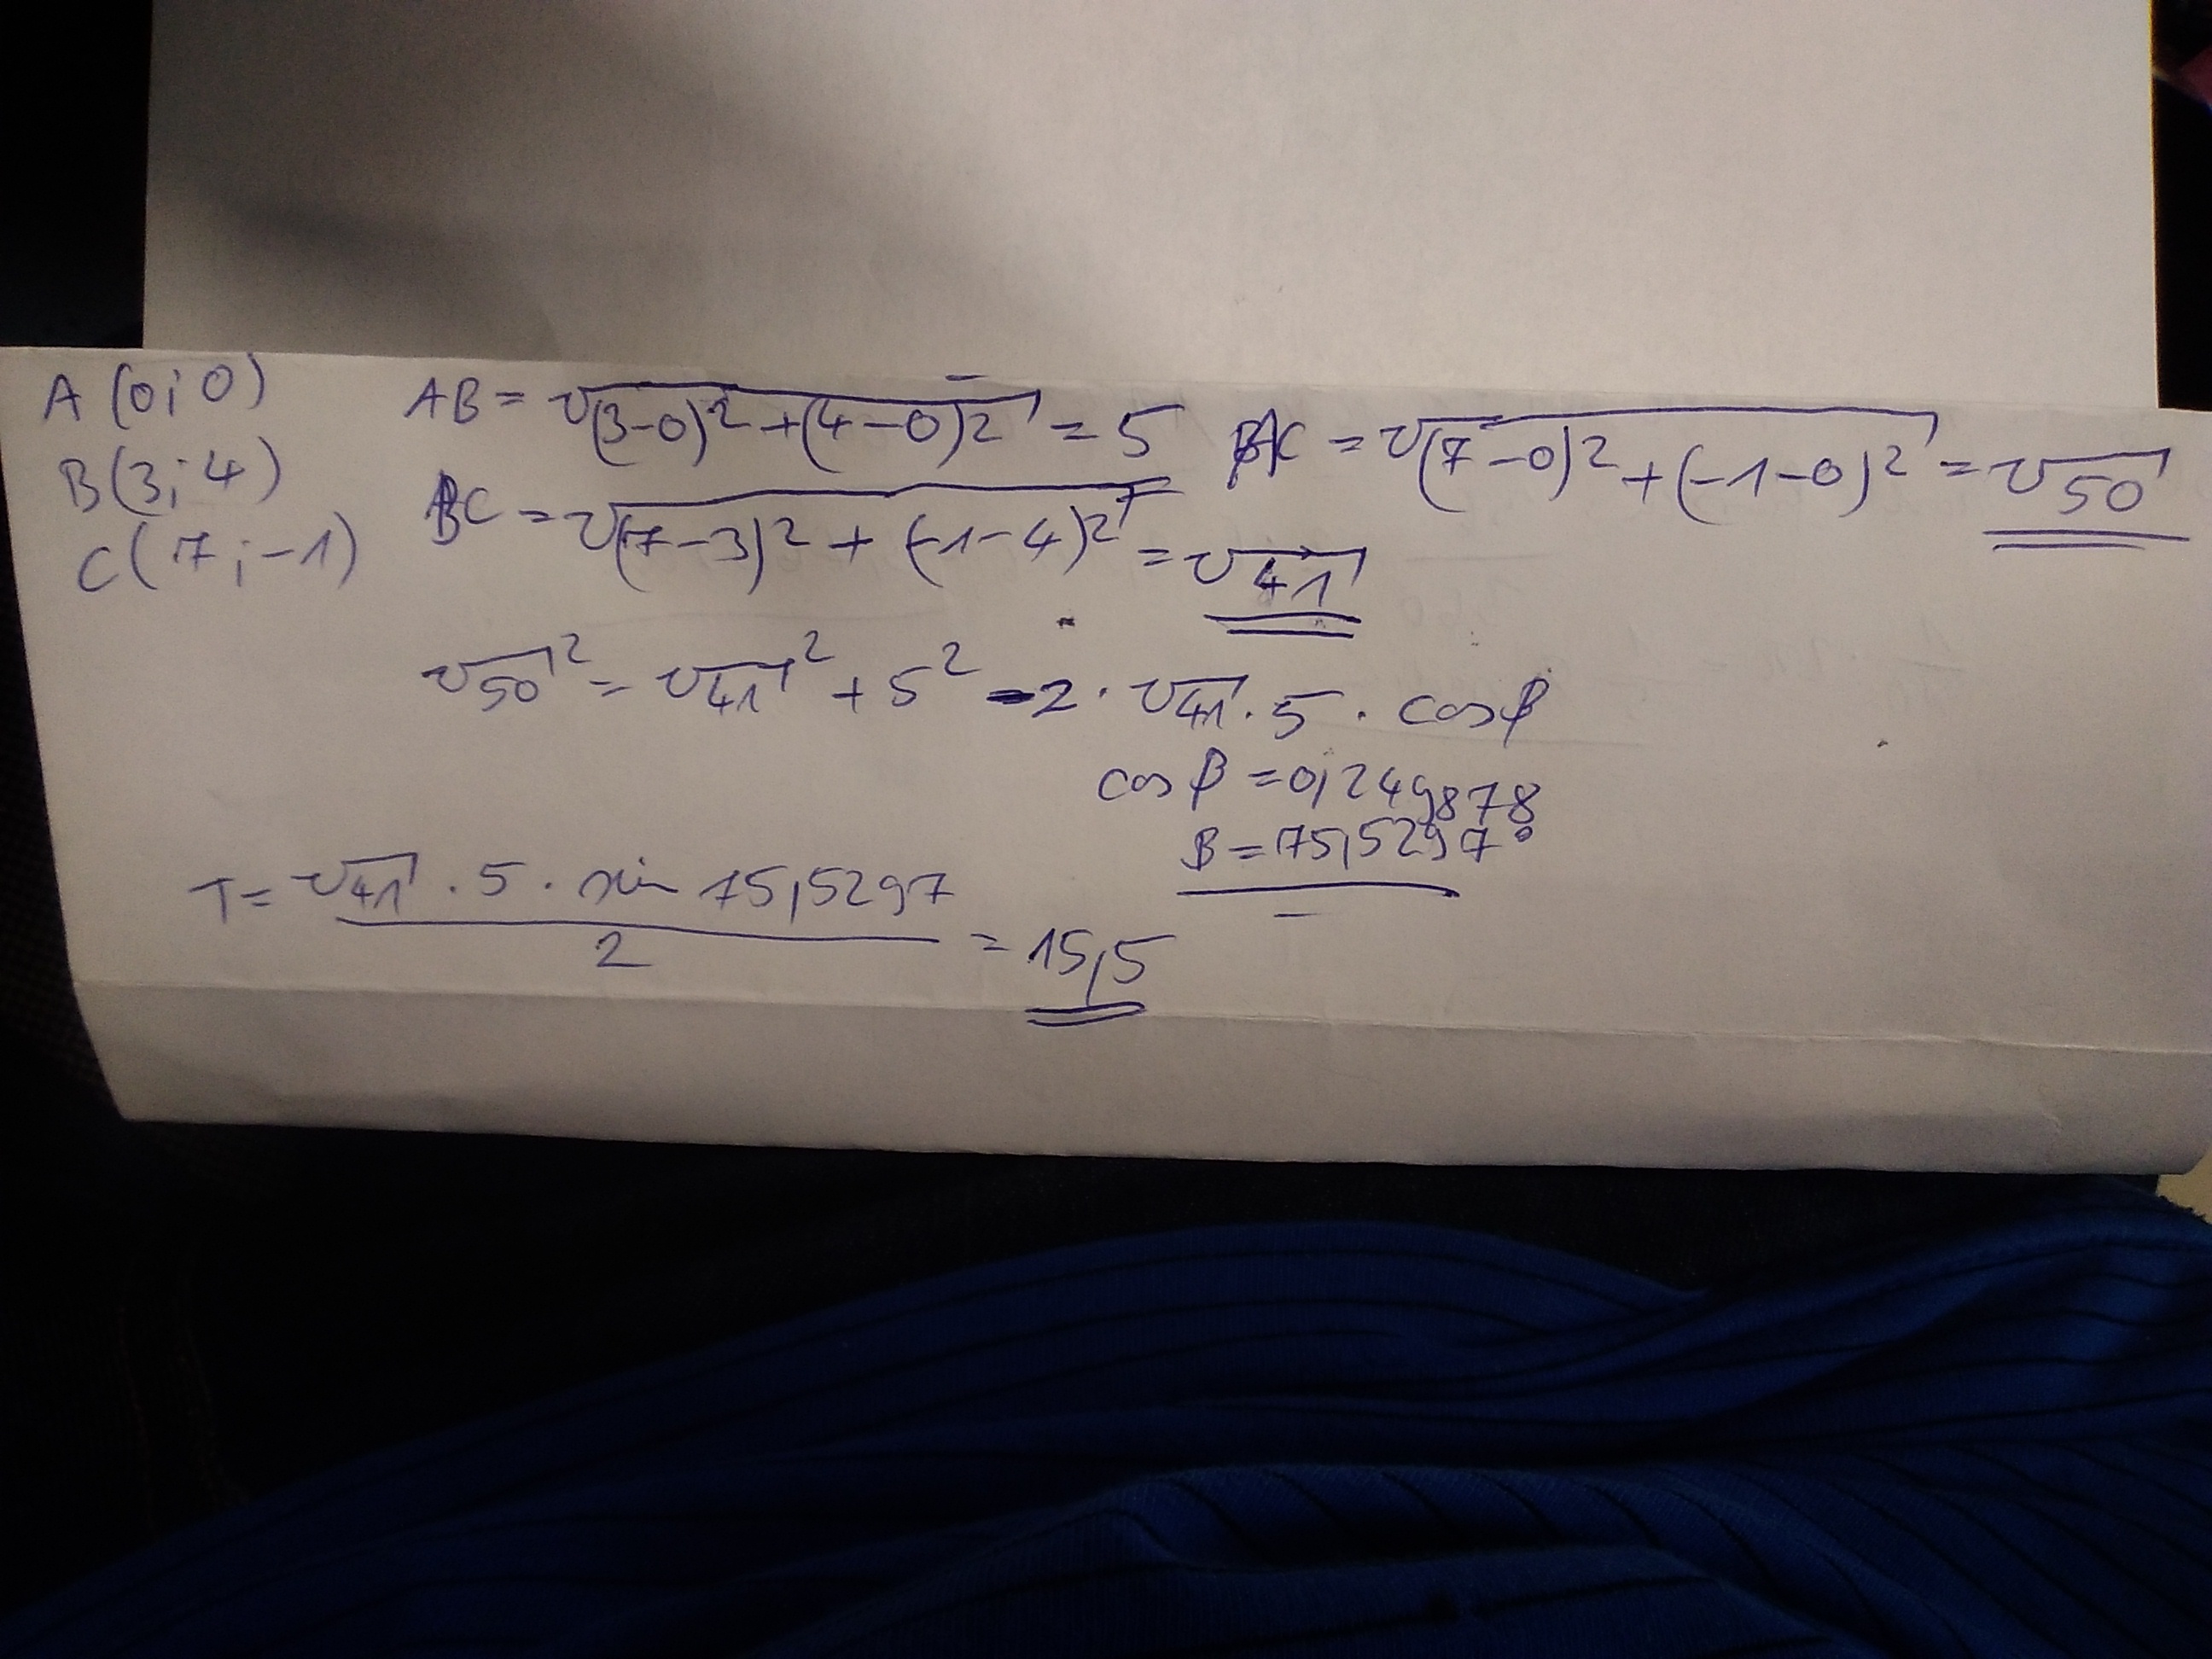 A (0; 0)
B (3; 4)
C (7; -1)
AB = √(3-0)² + (4-0)² = 5
AC = √(7-0)² + (-1-0)² = √50
BC = √(7-3)² + (-1-4)² = √41
√50² = √41² + 5² - 2 · √41 · 5 · cos β
cos β = 0,249878
β = 75,5297°
T = √41 · 5 · sin 75,5297 / 2 = 15,5